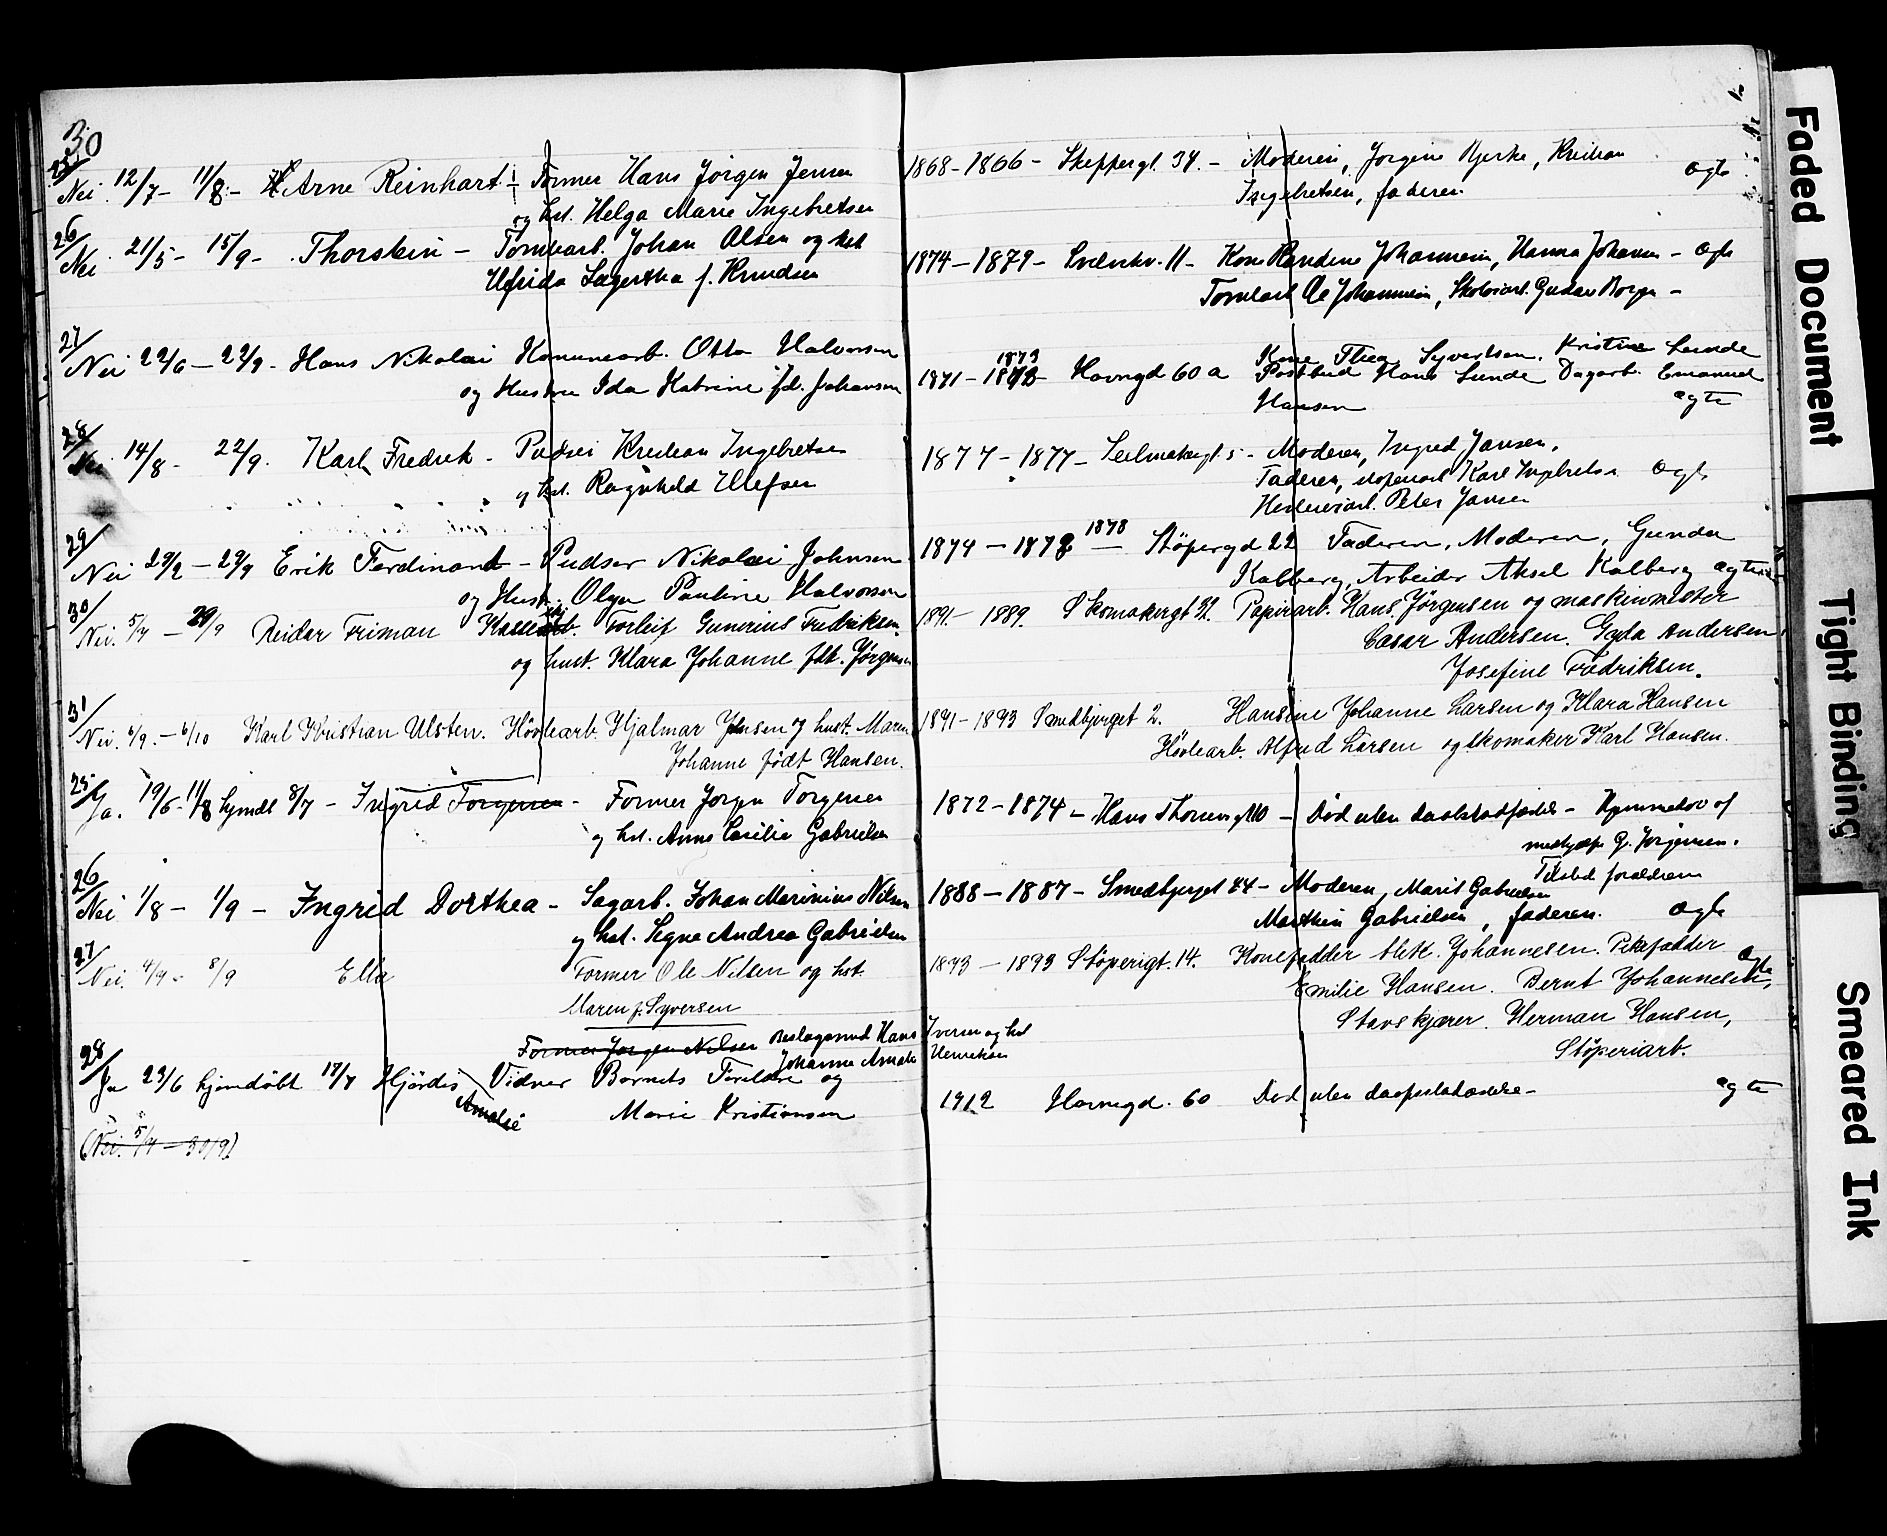 30
25/
Nei 12/7 - 11/8 - Arne Reinhart - Former Hans Jörgen Jensen
og hst. Helga Marie Ingebretsen
1868 - 1866 - Skeppergt. 34. - Moderen, Jorgine Bjerke, Kristian
Ingebretsen, faderen. ægte
26/
Nei 21/5 - 15/9 - Thorstein - Tomtearb. Johan Olsen og hst
Lagertha f. Knudsen
1874 - 1879 - 11 - Kone Randine Johannesen, Hanna Johansen - ægte
Tomtearb Johannesen, Gustav Borge -
27/
Nei 22/6 - 22/9 - Hans Nikolai Komunearb. Otto Halvorsen
og Hustru Ida Katrine fd. Johansen
1873
1871 - Havnegd 60 a Kone Thea Syvertsen. Kristine Lunde
Postbud Hans Lunde Dagarb. Emanuel
Hansen ægte
28/
Nei 14/8 - 22/9. Karl Fredrik - Pudser Kristian Ingebretsen
og hst. Ragnhild Ellefsen
1877 - 1877 - Seilmakergt. 5 - Moderen, Ingrid Jansen,
Faderen, støperiarb Karl Ingebretsen ægte
Peter Jansen
29/
Nei 23/2 - 29/9 Erik Ferdinand - Pudser Nikolai Johnsen
og Hust. Olga Pauline Halvorsen
1878
1874 - Støpergd 22 Faderen, Moderen, Gunda
Kalberg, Arbeider Aksel Kalberg ægte
30/
Nei. 5/7 - 29/9 Reidar Friman Torleif Gunerius Fredriksen.
og hust. Klara Johanne fdt. Jørgensen
1891 - 1889. Skomakergt 32. Papirarb. Hans Jørgensen og maskinmester
Cæsar Andersen. Gyda Andersen,
Josefine Fredriksen.
31/
Nei. 6/9. - 6/10 Karl Kristian Ulsten. Høvlearb. Hjalmar Jensen og hust. Maren
Johanne født Hansen.
1891 - 1893 Smedbjerget 2. Hansine Johanne Larsen og Klara Hansen
Høvlearb. Alfred Larsen og skomaker Karl Hansen.
25/
Ja. 19/6 - 11/8 hjmdt 8/7 - Ingrid Torgersen - Former Jorgen Torgersen
og hst. Anna Cecilie Gabrielsen
1872 - 1874 - Hans Thomesgt 10 - Død uten daabstadfæstelse - Hjemmedøbt af
G. Jorgensen.
Tilsted forældrene
26/
Nei 1/8 - 1/9 - Ingrid Dorthea - Sagarb. Johan Marinius Nilsen
og hst. Signe Andrea Gabrielsen
1888 - 1887 - Smedbjerget 44 - Moderen, Marit Gabrielsen
Marthin Gabrielsen, faderen. ægte
27/
Nei. 4/7 - 8/9 Ella Former Ole Nilsen og hst.
Maren f. Syversen
1893 - 1893 Støperigt. 14. Konefadder Johannesen. Pikefadder
Emilie Hansen. Bernt Johannesen,
Stavskjærer. Herman Hansen,
Støperiarb.
ægte
28/
Former Jorgen Nilsen Beslagsmed Hans Iversen og hst
Johanne Amalie Henriksen
Ja 23/6 hjemdøbt 18/7 Hjördis Vidner Barnets Foreldre og
Amalie Marie Kristiansen
1912 Havnegd. 60 Død uten daapsstadfæstelse - ægte
(Nei. 5/7 - 30/9)
Faded Document
Tight Binding
Smeared Ink